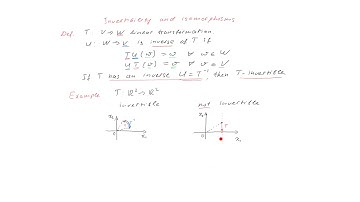 Invertibility and isomorphisms
Def. T: V→W linear transformation
U: W→V is inverse of T if
TU(w) = w ∀ w∈W
UT(v) = v ∀ v∈V
If T has an inverse U = T⁻¹, then T - invertible
Example T: R²→R²
invertible
not invertible
x₂
0
x₁
x₂
T
0
x₁